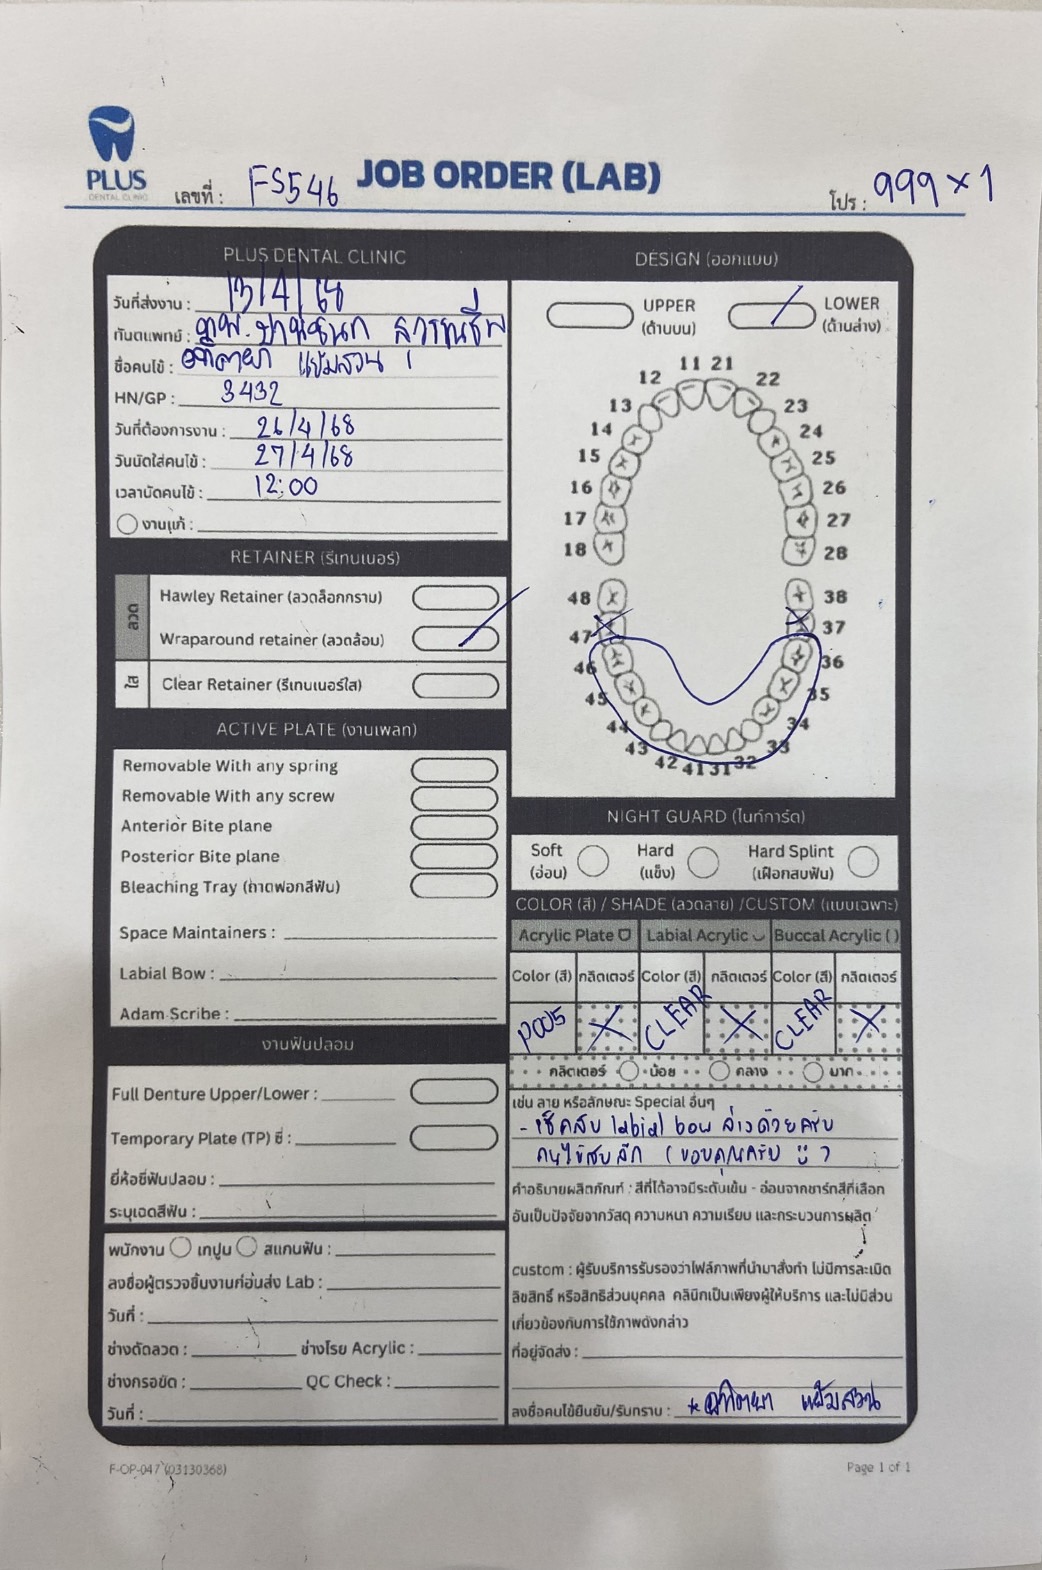 PLUS
DENTAL CLINIC
เลขที่ : FS546
JOB ORDER (LAB)
โปร : 999 x 1
PLUS DENTAL CLINIC
วันที่ส่งงาน : 13/4/68
ทันตแพทย์ : ทพ.
ชื่อคนไข้ : แย้มสวน
HN/GP : 3432
วันที่ต้องการงาน : 26/4/68
วันนัดใส่คนไข้ : 27/4/68
เวลานัดคนไข้ : 12:00
งานแก้ :
RETAINER (รีเทนเนอร์)
ลวด
Hawley Retainer (ลวดล็อกกราม)
Wraparound retainer (ลวดล้อม)
ใส
Clear Retainer (รีเทนเนอร์ใส)
ACTIVE PLATE (งานเพลท)
Removable With any spring
Removable With any screw
Anterior Bite plane
Posterior Bite plane
Bleaching Tray (ถาดฟอกสีฟัน)
Space Maintainers :
Labial Bow :
Adam Scribe :
งานฟันปลอม
Full Denture Upper/Lower :
Temporary Plate (TP) ซี่ :
ยี่ห้อซี่ฟันปลอม :
ระบุเฉดสีฟัน :
พนักงาน เทปูน สแกนฟัน :
ลงชื่อผู้ตรวจชิ้นงานก่อนส่ง Lab :
วันที่ :
ช่างดัดลวด : ช่างโรย Acrylic :
ช่างกรอขัด : QC Check :
วันที่ :
DESIGN (ออกแบบ)
UPPER
(ด้านบน)
LOWER
(ด้านล่าง)
11 21
12 22
13 23
14 24
15 25
16 26
17 27
18 28
48 38
47 37
46 36
45 35
44 34
43 33
42 41 31 32
NIGHT GUARD (ไนท์การ์ด)
Soft
(อ่อน)
Hard
(แข็ง)
Hard Splint
(เฝือกสบฟัน)
COLOR (สี) / SHADE (ลวดลาย) /CUSTOM (แบบเฉพาะ)
Acrylic Plate Labial Acrylic Buccal Acrylic ( )
Color (สี) กลิตเตอร์ Color (สี) กลิตเตอร์ Color (สี) กลิตเตอร์
P005 X CLEAR X CLEAR X
กลิตเตอร์ น้อย กลาง มาก
เช่น ลาย หรือลักษณะ Special อื่นๆ
- เช็คสบ labial bow ล่างด้วยครับ
คนไข้สบลึก (ขอบคุณครับ )
คำอธิบายผลิตภัณฑ์ : สีที่ได้อาจมีระดับเข้ม - อ่อนจากชาร์ทสีที่เลือก
อันเป็นปัจจัยจากวัสดุ ความหนา ความเรียบ และกระบวนการผลิต
custom : ผู้รับบริการรับรองว่าไฟล์ภาพที่นำมาสั่งทำ ไม่มีการละเมิด
ลิขสิทธิ์ หรือสิทธิส่วนบุคคล คลินิกเป็นเพียงผู้ให้บริการ และไม่มีส่วน
เกี่ยวข้องกับการใช้ภาพดังกล่าว
ที่อยู่จัดส่ง :
ลงชื่อคนไข้ยืนยัน/รับทราบ : * แย้มสวน
F-OP-047 (03130368)
Page 1 of 1